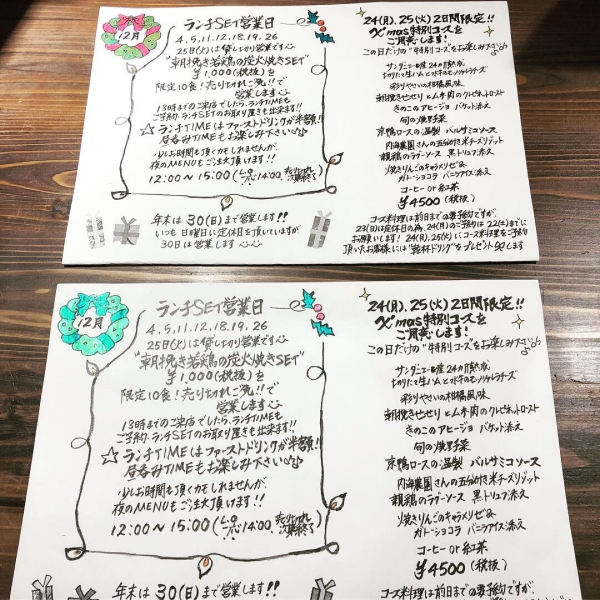 12月
ランチSET営業日
4,5,11,12,18,19,26
25日(火)は貸し切り営業です
"朝挽き若鶏の炭火焼きSET"
¥1,000(税抜)を
限定10食!売り切れご免!!で
営業します
13時までのご来店でしたら、ランチTIMEも
ご予約、ランチSETのお取り置きも出来ます!!
☆ランチTIMEはファーストドリンクが半額!!
昼呑みTIMEもお楽しみ下さい♪
少しお時間も頂くかもしれませんが、
夜のMENUもご注文頂けます!!
12:00~15:00(L.O 14:00、売り切れ次第終了)
年末は30(日)まで営業します!!
いつも日曜日に定休日を頂いていますが
30日は営業します
24(月)、25(火)2日間限定!!
X'mas特別コースを
ご用意します!
この日だけの"特別コース"をお楽しみ下さい♪
サンダニエーレ産24ヵ月熟成
切りたて生ハムと水牛のモッツァレラチーズ
彩りやさいの柑橘風味
朝挽きせせりとムネ肉のクレピネットロースト
きのこのアヒージョ バケット添え
旬の焼野菜
京鴨ロースの温製 バルサミコソース
内海農園さんの五分づき米チーズリゾット
親鶏のラグーソース 黒トリュフ添え
焼きりんごのキャラメリゼ&
ガトーショコラ バニラアイス添え
コーヒー or 紅茶
¥4500(税抜)
コース料理は前日までの要予約ですが、
23(日)は定休日の為、24(月)のご予約は22(土)までに
お願いします!24(月)、25(火)にコース料理をご予約
頂いたお客様には"乾杯ドリンク"をプレゼント致します
12月
ランチSET営業日
4,5,11,12,18,19,26
25日(火)は貸し切り営業です
"朝挽き若鶏の炭火焼きSET"
¥1,000(税抜)を
限定10食!売り切れご免!!で
営業します
13時までのご来店でしたら、ランチTIMEも
ご予約、ランチSETのお取り置きも出来ます!!
☆ランチTIMEはファーストドリンクが半額!!
昼呑みTIMEもお楽しみ下さい♪
少しお時間も頂くかもしれませんが、
夜のMENUもご注文頂けます!!
12:00~15:00(L.O 14:00、売り切れ次第終了)
年末は30(日)まで営業します!!
24(月)、25(火)2日間限定!!
X'mas特別コースを
ご用意します!
この日だけの"特別コース"をお楽しみ下さい♪
サンダニエーレ産24ヵ月熟成
切りたて生ハムと水牛のモッツァレラチーズ
彩りやさいの柑橘風味
朝挽きせせりとムネ肉のクレピネットロースト
きのこのアヒージョ バケット添え
旬の焼野菜
京鴨ロースの温製 バルサミコソース
内海農園さんの五分づき米チーズリゾット
親鶏のラグーソース 黒トリュフ添え
焼きりんごのキャラメリゼ&
ガトーショコラ バニラアイス添え
コーヒー or 紅茶
¥4500(税抜)
コース料理は前日までの要予約ですが、